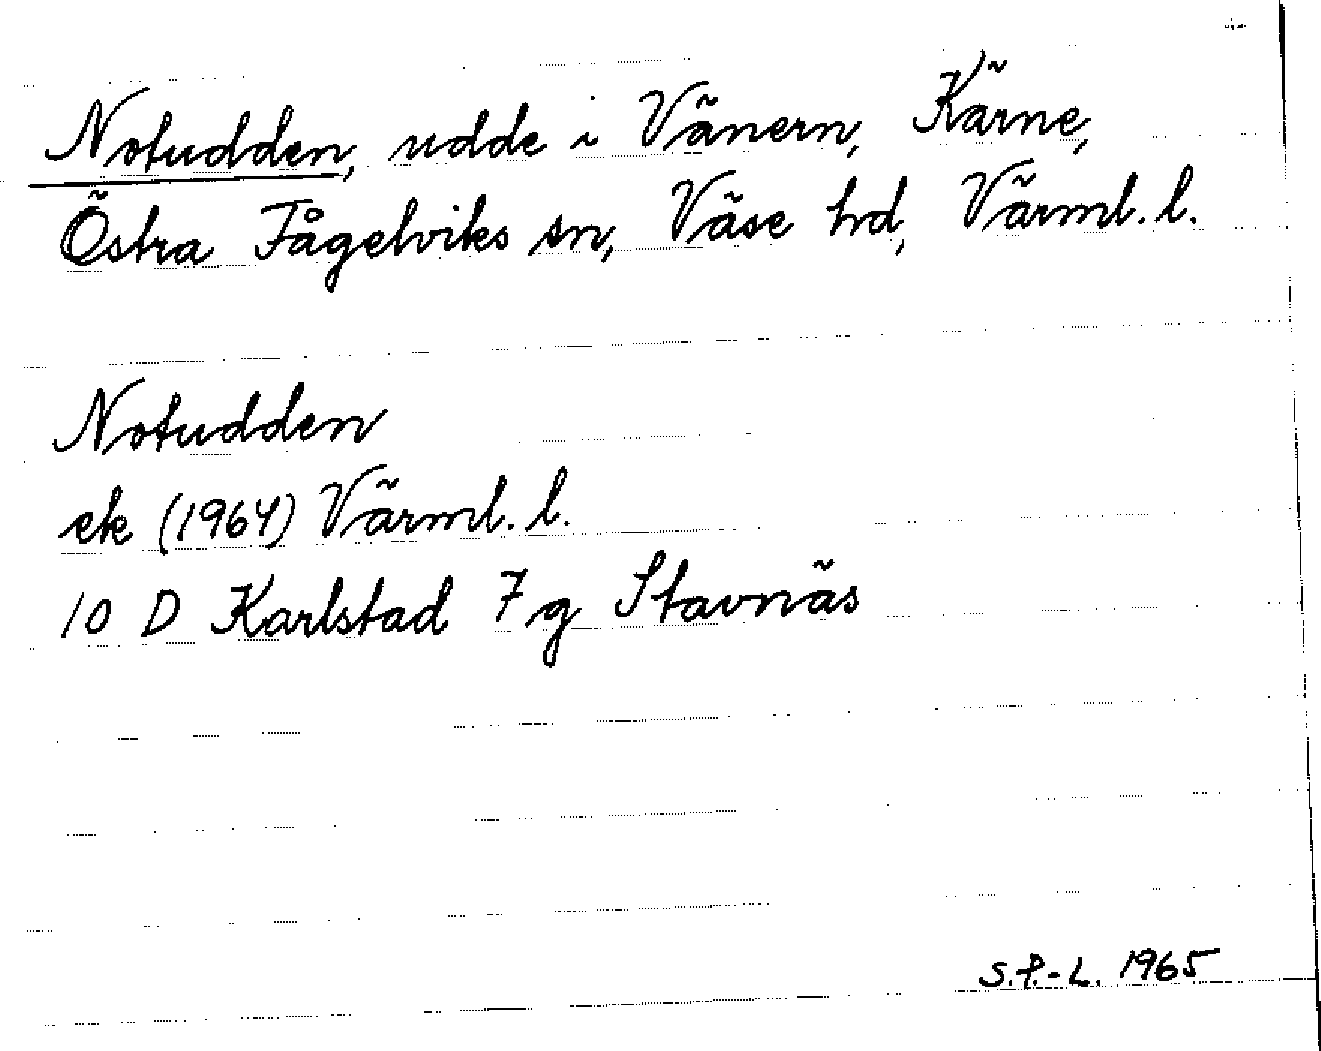 Notudden, udde i Vänern, Kärne,
Östra Fågelviks sn, Väse hd, Värml. l.
Notudden
ek (1964) Värml. l.
10 D Karlstad 7 g Stavnäs
S.P.-L. 1965